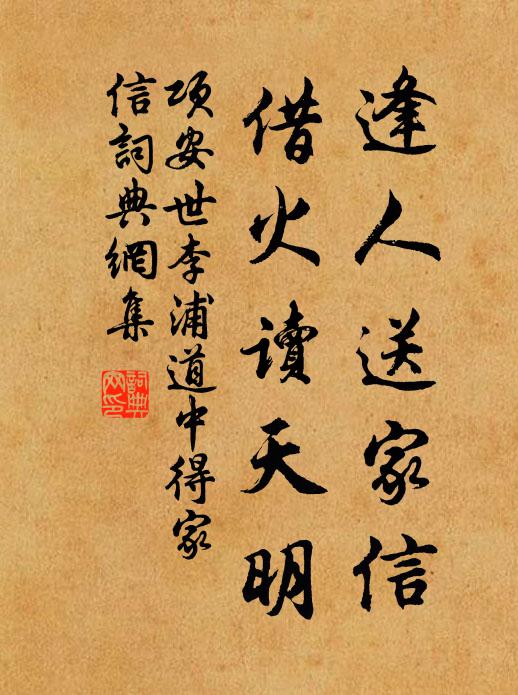 逢人送家信
借火讀天明
項安世李浦道中得家
信詞典網集
詞典
网印